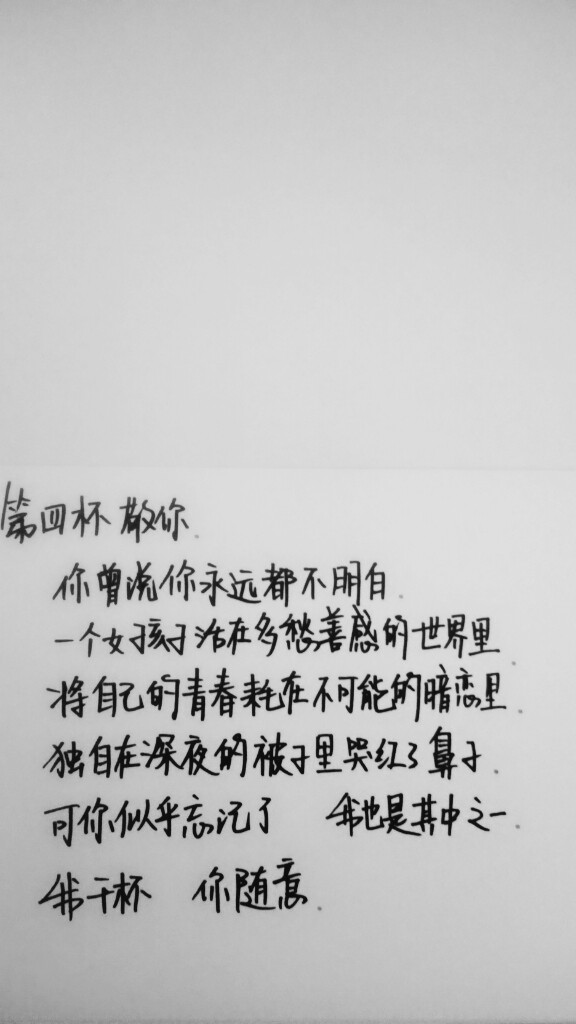 第四杯 敬你.
你曾说你永远都不明白.
一个女孩子活在多愁善感的世界里.
将自己的青春耗在不可能的暗恋里.
独自在深夜的被子里哭红了鼻子.
可你似乎忘记了 我也是其中之一.
我干杯 你随意.